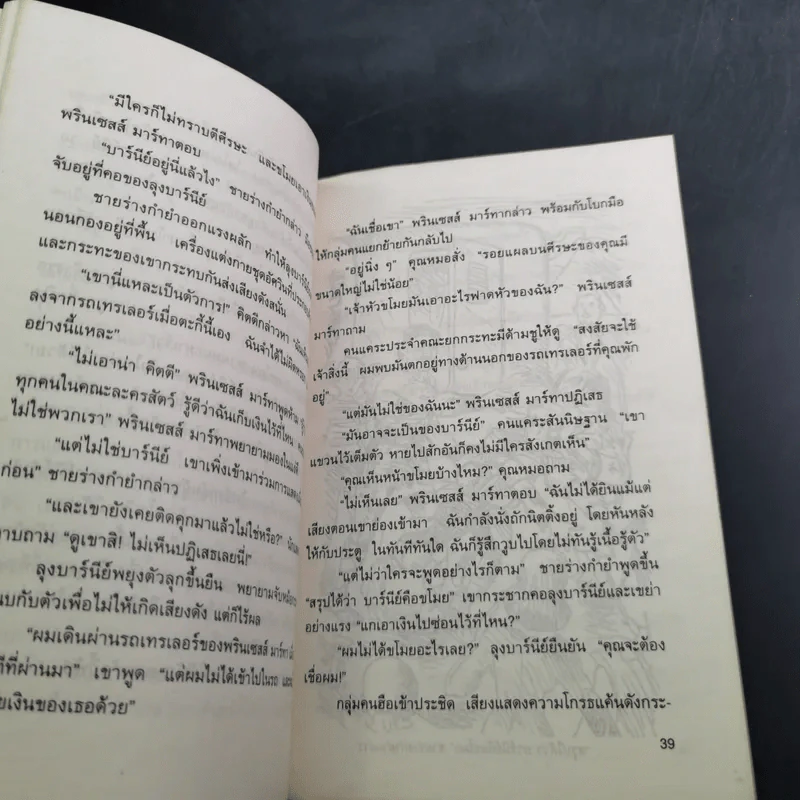 “มีใครก็ไม่ทราบตีศีรษะ และขโมยเอาเงิน
พรินเซสส์ มาร์ทาตอบ
“บาร์นีย์อยู่นี่แล้วไง” ชายร่างกำยำกล่าว
จับอยู่ที่คอของลุงบาร์นีย์
ชายร่างกำยำออกแรงผลัก ทำให้ลุงบาร์นีย์
นอนกองอยู่ที่พื้น เครื่องแต่งกายชุดอัศวินที่
และกระทะของเขากระทบกันส่งเสียงดังสนั่น
“เขานี่แหละเป็นตัวการ!” คิตตีกล่าวหา
ลงจากรถเทรเลอร์เมื่อตะกี้นี้เอง ฉันจำได้ไม่มี
อย่างนี้แหละ”
“ไม่เอาน่า คิตตี” พรินเซสส์ มาร์ทาพูด
ทุกคนในคณะละครสัตว์ รู้ดีว่าฉันเก็บเงินไว้ที่ไหน
ไม่ใช่พวกเรา” พรินเซสส์ มาร์ทาพยายามมองในแง่
“แต่ไม่ใช่บาร์นีย์ เขาเพิ่งเข้ามาร่วมการ
ก่อน” ชายร่างกำยำกล่าว
“และเขายังเคยติดคุกมาแล้วไม่ใช่หรือ?”
าบถาม “ดูเขาสิ! ไม่เห็นปฏิเสธเลยนี่!”
ลุงบาร์นีย์พยุงตัวลุกขึ้นยืน พยายามจับ
นบกับตัวเพื่อไม่ให้เกิดเสียงดัง แต่ก็ไร้ผล
“ผมเดินผ่านรถเทรเลอร์ของพรินเซสส์ มาร์ทา
ทีที่ผ่านมา” เขาพูด “แต่ผมไม่ได้เข้าไปในรถ
ยเงินของเธอด้วย”
“ฉันเชื่อเขา” พรินเซสส์ มาร์ทากล่าว พร้อมกับโบกมือ
ให้กลุ่มคนแยกย้ายกันกลับไป
“อยู่นิ่ง ๆ” คุณหมอสั่ง “รอยแผลบนศีรษะของคุณมี
ขนาดใหญ่ไม่ใช่น้อย”
“เจ้าหัวขโมยมันเอาอะไรฟาดหัวของฉัน?” พรินเซสส์
มาร์ทาถาม
คนแคระประจำคณะยกกระทะมีด้ามชูให้ดู “สงสัยจะใช้
เจ้าสิ่งนี้ ผมพบมันตกอยู่ทางด้านนอกของรถเทรเลอร์ที่คุณพัก
อยู่”
“แต่มันไม่ใช่ของฉันนะ” พรินเซสส์ มาร์ทาปฏิเสธ
“มันอาจจะเป็นของบาร์นีย์” คนแคระสันนิษฐาน “เขา
แขวนไว้เต็มตัว หายไปสักอันก็คงไม่มีใครสังเกตเห็น”
“คุณเห็นหน้าขโมยบ้างไหม?” คุณหมอถาม
“ไม่เห็นเลย” พรินเซสส์ มาร์ทาตอบ “ฉันไม่ได้ยินแม้แต่
เสียงตอนเขาย่องเข้ามา ฉันกำลังนั่งถักนิตติ้งอยู่ โดยหันหลัง
ให้กับประตู ในทันทีทันใด ฉันก็รู้สึกวูบไปโดยไม่ทันรู้เนื้อรู้ตัว”
“แต่ไม่ว่าใครจะพูดอย่างไรก็ตาม” ชายร่างกำยำพูดขึ้น
“สรุปได้ว่า บาร์นีย์คือขโมย” เขากระชากคอลุงบาร์นีย์และเขย่า
อย่างแรง “แกเอาเงินไปซ่อนไว้ที่ไหน?”
“ผมไม่ได้ขโมยอะไรเลย?” ลุงบาร์นีย์ยืนยัน “คุณจะต้อง
เชื่อผม!”
กลุ่มคนฮือเข้าประชิด เสียงแสดงความโกรธแค้นดังกระ-
39